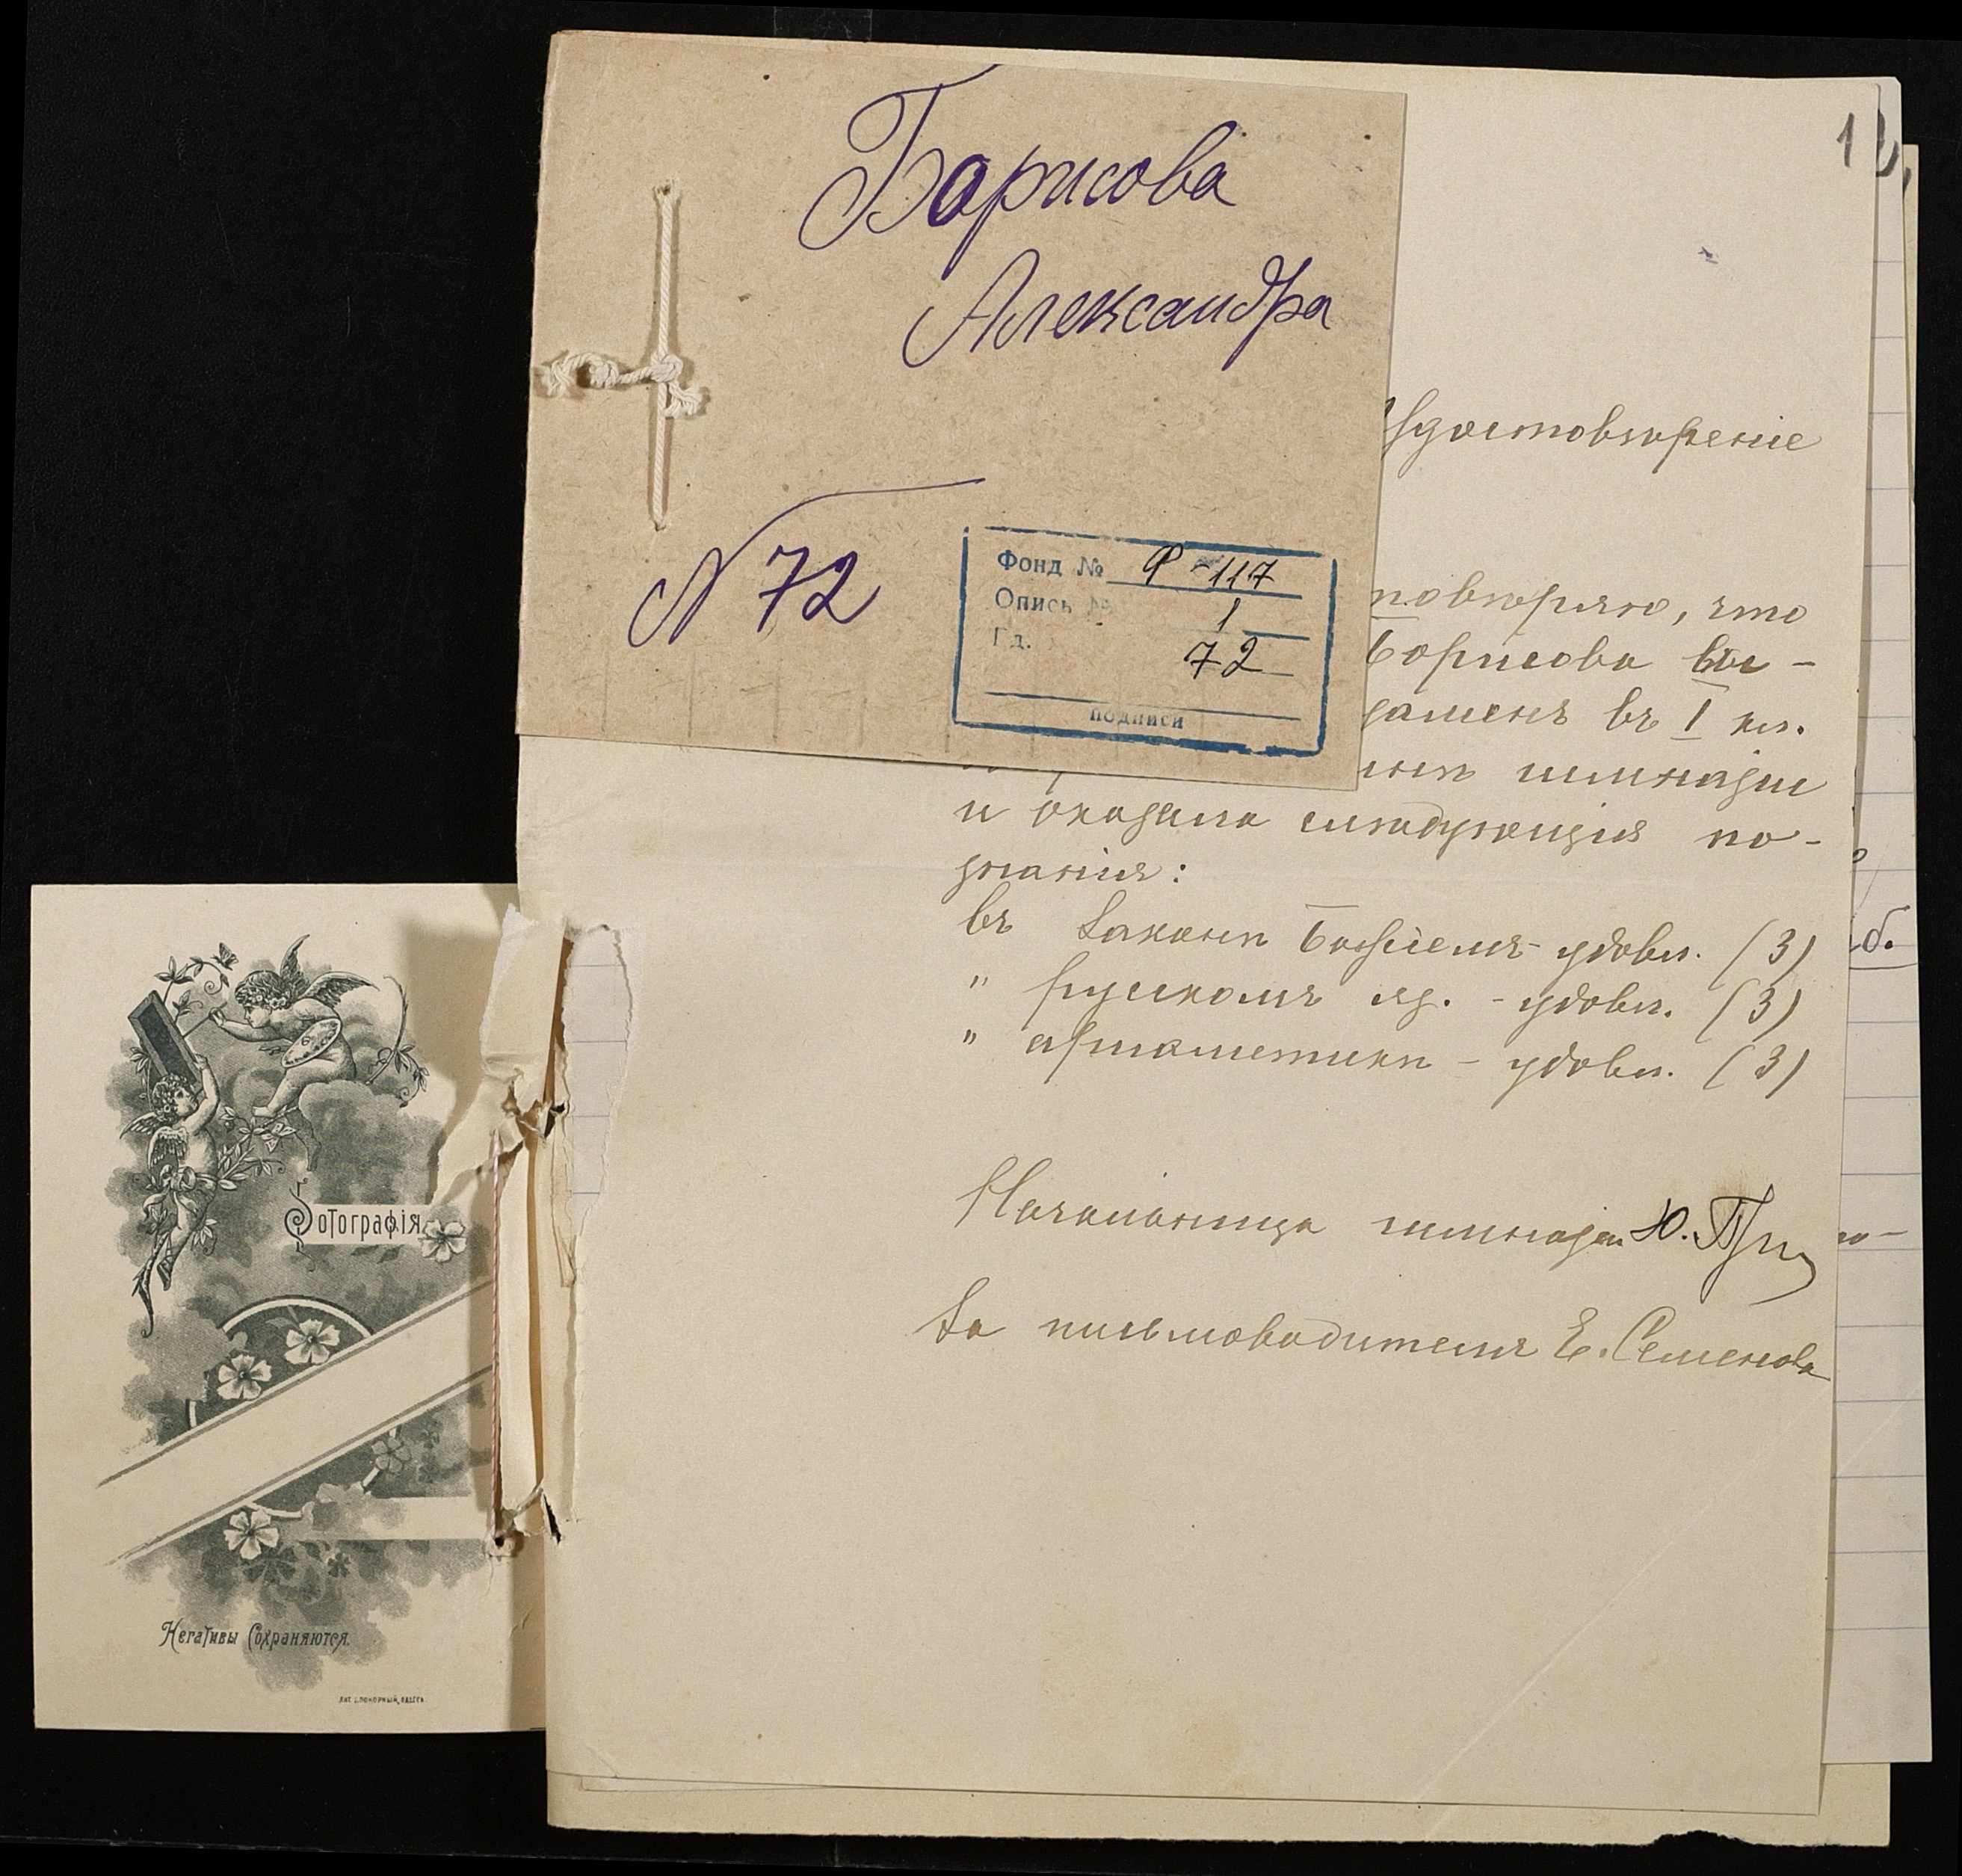 Борисова
Александра
N 72
Фонд № Ф-117
Опись № 1
72
подписи
Удостовѣреніе
товѣряю, что
Борисова вы-
заменъ въ I кл.
гимназіи
и оказала слѣдующія по-
знанія:
въ Законѣ Божіемъ - удовл. (3)
" русскомъ яз. - удовл. (3)
" ариѳметикѣ - удовл. (3)
Начальница гимназіи Ю.
За письмоводителя Е. Семенова
Фотографія
Негативы Сохраняются.